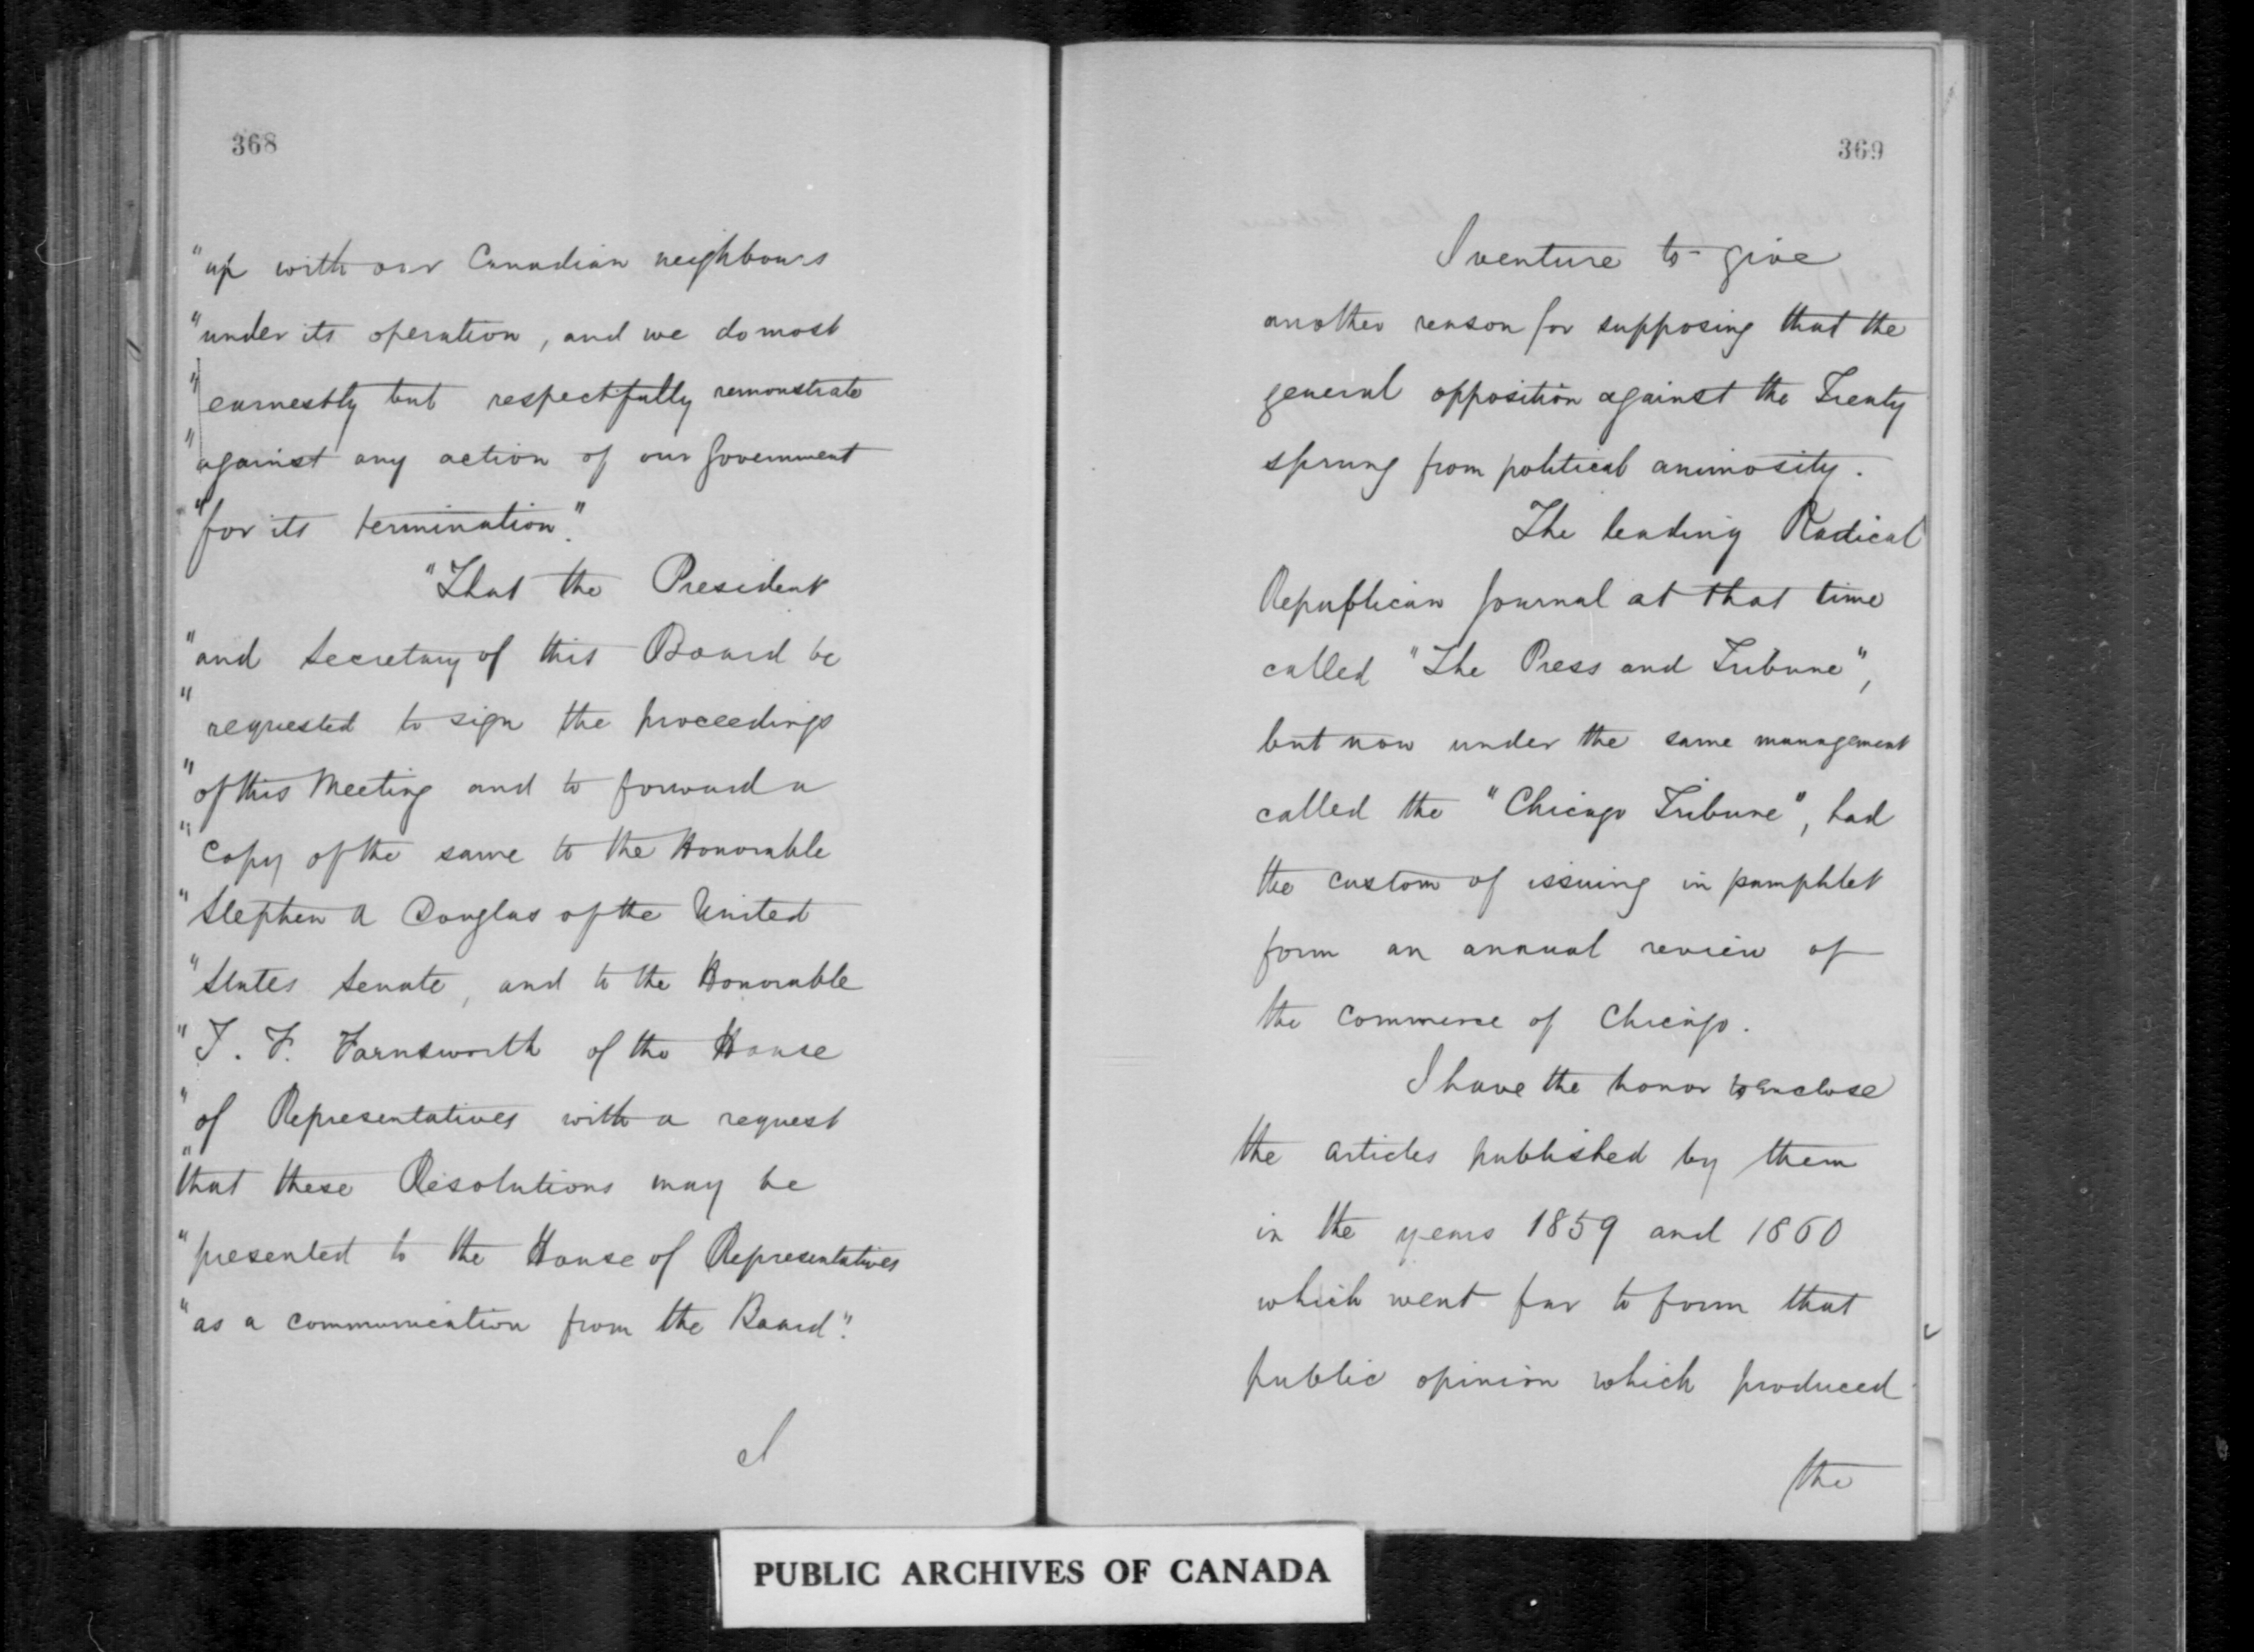 368
"up with our Canadian neighbours
"under its operation, and we do most
"earnestly but respectfully remonstrate
"against any action of our Government
"for its termination."
"That the President
"and Secretary of this Board be
"requested to sign the proceedings
"of this Meeting and to forward a
"copy of the same to the Honorable
"Stephen A Douglas of the United
"States Senate, and to the Honorable
"J. F. Farnsworth of the House
"of Representatives with a request
"that these Resolutions may be
"presented to the House of Representatives
"as a communication from the Board".
I
369
I venture to give
another reason for supposing that the
general opposition against the Treaty
sprung from political animosity.
The leading Radical
Republican Journal at that time
called "The Press and Tribune",
but now under the same management
called the "Chicago Tribune", had
the custom of issuing in pamphlet
form an annual review of
the Commerce of Chicago.
I have the honor to enclose
the articles published by them
in the years 1859 and 1860
which went far to form that
public opinion which produced
the
PUBLIC ARCHIVES OF CANADA